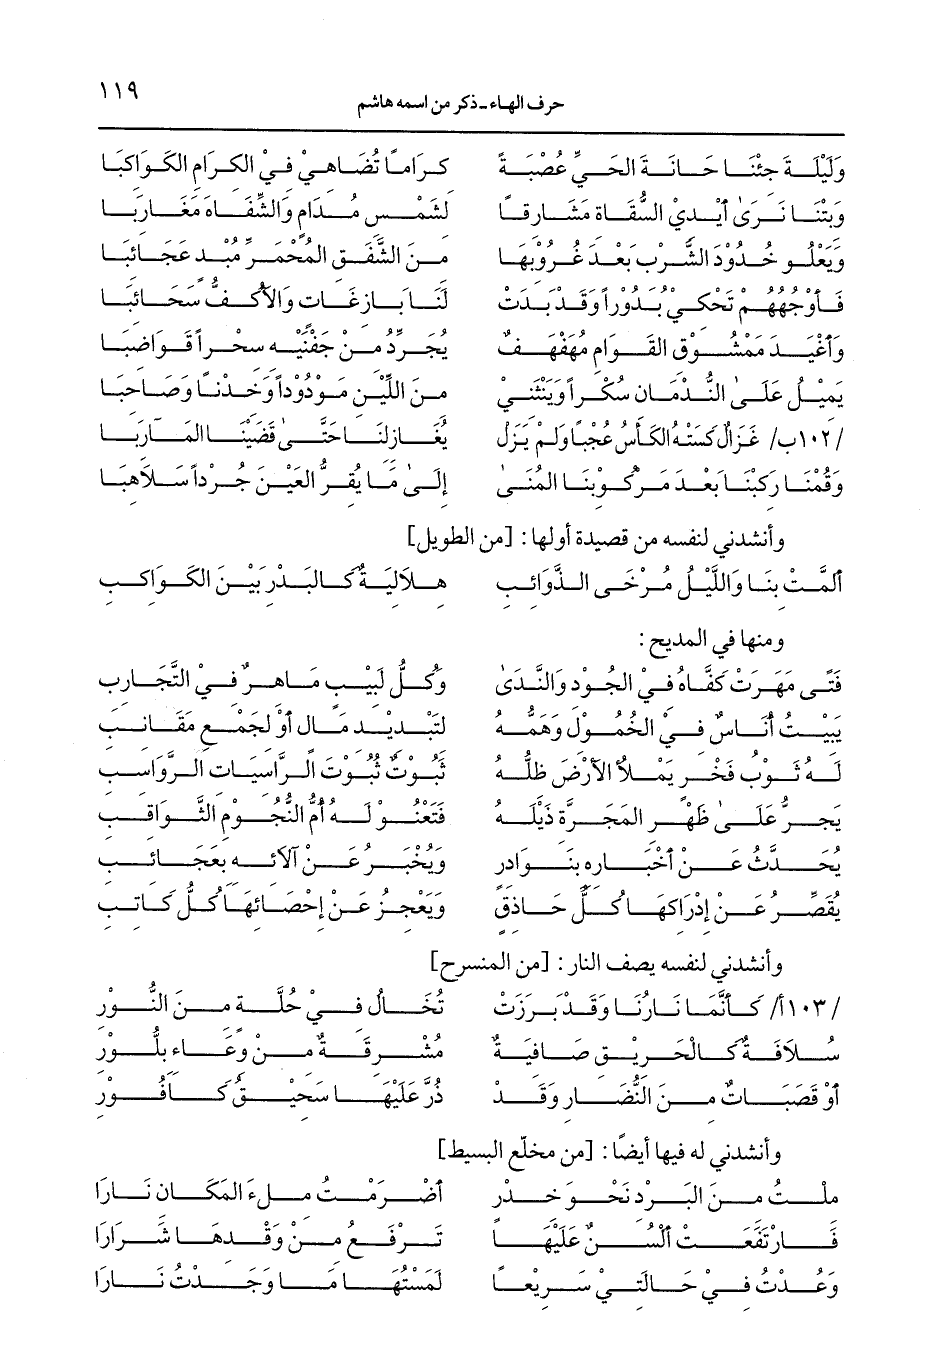 حرف الهاء ـ ذكر من اسمه هاشم ١١٩
وَلَيْلَةَ جِئْنَا حَانَةَ الحَيِّ عُصْبَةً كِرَامًا تُضَاهِي فِي الكِرَامِ الكَوَاكِبَا
وَبِتْنَا نَرَىٰ أَيْدِي السُّقَاةِ مَشَارِقًا لِشَمْسِ مُدَامٍ وَالشِّفَاهَ مَغَارِبَا
وَيَعْلُو خُدُودَ الشَّرْبِ بَعْدَ غُرُوبِهَا مِنَ الشَّفَقِ المُحْمَرِّ مُبْدٍ عَجَائِبَا
فَأَوْجُهُهُمْ تَحْكِي بُدُوراً وَقَدْ بَدَتْ لَنَا بَازِغَاتٍ وَالأَكُفُّ سَحَائِبَا
وَأَغْيَدَ مَمْشُوقِ القَوَامِ مُهَفْهَفٍ يُجَرِّدُ مِنْ جَفْنَيْهِ سِحْراً قَوَاضِبَا
يَمِيْلُ عَلَىٰ النُّدْمَانِ سُكْراً وَيَنْثَنِي مِنَ اللِّيْنِ مَوْدُوداً وَخِدْنًا وَصَاحِبَا
/١٠٢ب/ غَزَالٌ كَسَتْهُ الكَأْسُ عُجْبًا وَلَمْ يَزَلْ يُغَازِلُنَا حَتَّىٰ قَضَيْنَا المَآرِبَا
وَقُمْنَا رَكِبْنَا بَعْدَ مَرْكُوبِنَا المُنَىٰ إِلَىٰ مَا يُقِرُّ العَيْنَ جُرْداً سَلاَهِبَا
وأنشدني لنفسه من قصيدة أولها: [من الطويل]
أَلَمَّتْ بِنَا وَاللَّيْلُ مُرْخَى الذَّوَائِبِ هِلاَلِيَّةٌ كَالبَدْرِ بَيْنَ الكَوَاكِبِ
ومنها في المديح:
فَتًى مَهَرَتْ كَفَّاهُ فِي الجُودِ وَالنَّدَىٰ وَكُلُّ لَبِيْبٍ مَاهِرٌ فِي التَّجَارِبِ
يَبِيْتُ أُنَاسٌ فِي الخُمُولِ وَهَمُّهُ لِتَبْدِيْدِ مَالٍ أَوْ لِجَمْعِ مَقَانِبِ
لَهُ ثَوْبُ فَخْرٍ يَمْلأُ الأَرْضَ ظِلُّهُ ثُبُوْتٌ ثُبُوْتَ الرَّاسِيَاتِ الرَّوَاسِبِ
يَجُرُّ عَلَىٰ ظَهْرِ المَجَرَّةِ ذَيْلَهُ فَتَعْنُو لَهُ أُمُّ النُّجُومِ الثَّوَاقِبِ
يُحَدِّثُ عَنْ أَخْبَارِهِ بِنَوَادِرٍ وَيُخْبِرُ عَنْ آلاَئِهِ بِعَجَائِبِ
يُقَصِّرُ عَنْ إِدْرَاكِهَا كُلُّ حَاذِقٍ وَيَعْجِزُ عَنْ إِحْصَائِهَا كُلُّ كَاتِبِ
وأنشدني لنفسه يصف النار: [من المنسرح]
/١٠٣أ/ كَأَنَّمَا نَارُنَا وَقَدْ بَرَزَتْ تُخَالُ فِي حُلَّةٍ مِنَ النُّورِ
سُلاَفَةٌ كَالحَرِيْقِ صَافِيَةٌ مُشْرِقَةٌ مِنْ وِعَاءِ بَلُّورِ
أَوْ قَصَبَاتٌ مِنَ النُّضَارِ وَقَدْ ذُرَّ عَلَيْهَا سَحِيْقُ كَافُورِ
وأنشدني له فيها أيضًا: [من مخلّع البسيط]
مِلْتُ مِنَ البَرْدِ نَحْوَ خِدْرٍ أَضْرَمْتُ مِلْءَ المَكَانِ نَارَا
فَارْتَفَعَتْ أَلْسُنٌ عَلَيْهَا تَرْفَعُ مِنْ وَقْدِهَا شَرَارَا
وَعُدْتُ فِي حَالَتِي سَرِيعًا لَمَسْتُهَا مَا وَجَدْتُ نَارَا